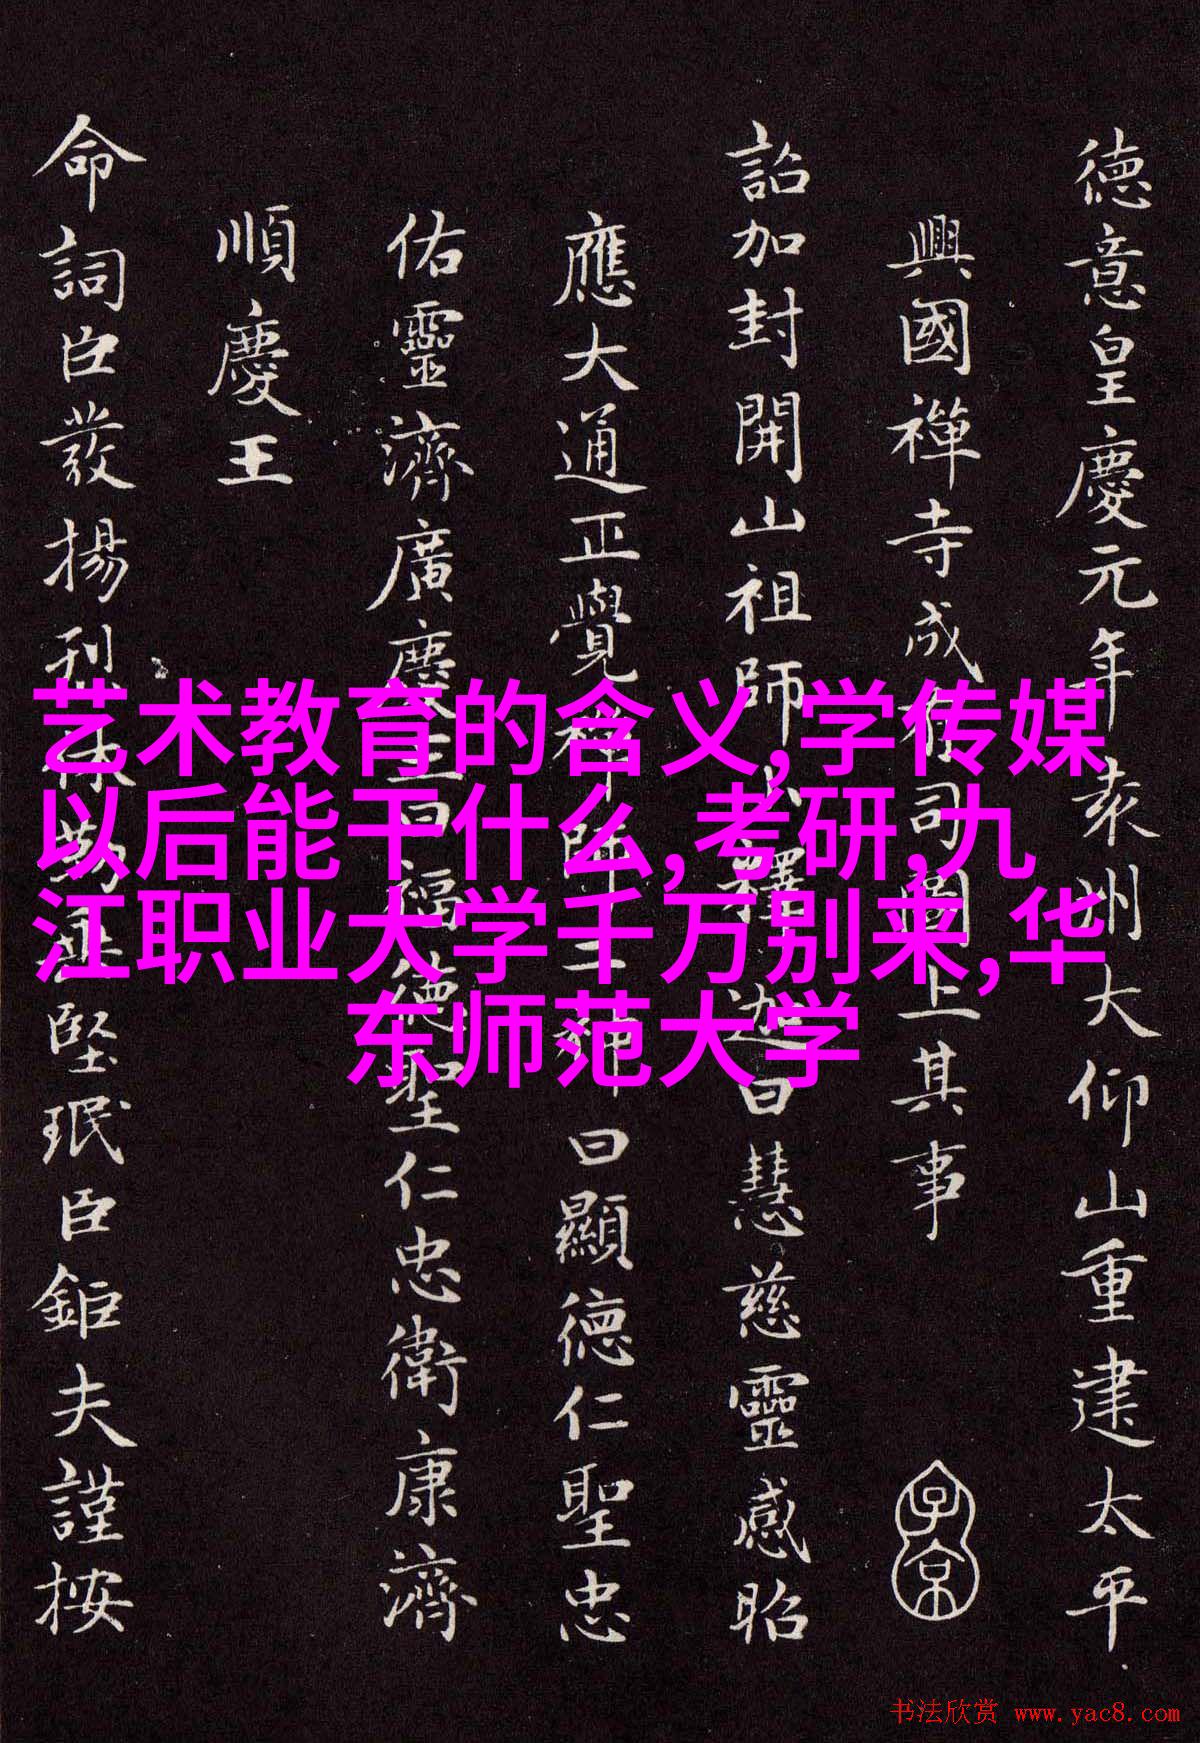 德意皇慶元年袁州大仰山重建太平
興國禪寺成有司圖上其事
子京
詔加封開山祖師小釋迦曰慧慈靈感昭
應大通正覺禪師二神曰顯德仁聖忠
佑靈濟廣慶王曰福德聖仁忠衛康濟
順慶王
命詞臣發揚堅珉臣鉅夫謹按
艺术教育的含义,学传媒
以后能干什么,考研,九
江职业大学千万别来,华
东师范大学
书法欣赏 www.yac8.com